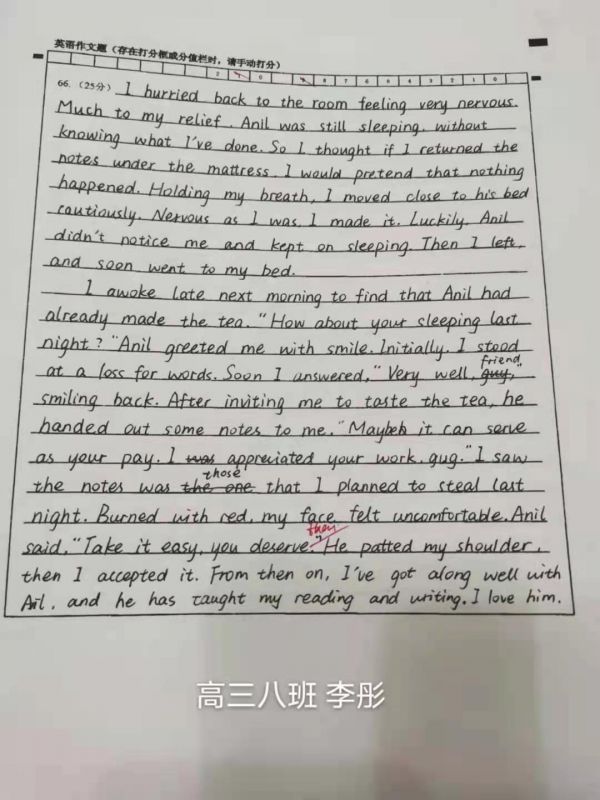 英语作文题（存在打分框或分值栏时，请手动打分）
2 1 0 9 8 7 6 5 4 3 2 1 0
66.（25分） I hurried back to the room feeling very nervous.
Much to my relief, Anil was still sleeping, without
knowing what I've done. So I thought if I returned the
notes under the mattress, I would pretend that nothing
happened. Holding my breath, I moved close to his bed
cautiously. Nervous as I was, I made it. Luckily, Anil
didn't notice me and kept on sleeping. Then I left,
and soon went to my bed.
I awoke late next morning to find that Anil had
already made the tea. "How about your sleeping last
night?" Anil greeted me with smile. Initially, I stood
friend
at a loss for words. Soon I answered, "Very well, guy,"
smiling back. After inviting me to taste the tea, he
handed out some notes to me. "Maybeh it can serve
as your pay. I was appreciated your work, gug." I saw
those
the notes was the one that I planned to steal last
night. Burned with red, my face felt uncomfortable. Anil
them
said, "Take it easy, you deserve." He patted my shoulder,
then I accepted it. From then on, I've got along well with
Ail, and he has taught my reading and writing. I love him.
高三八班 李彤